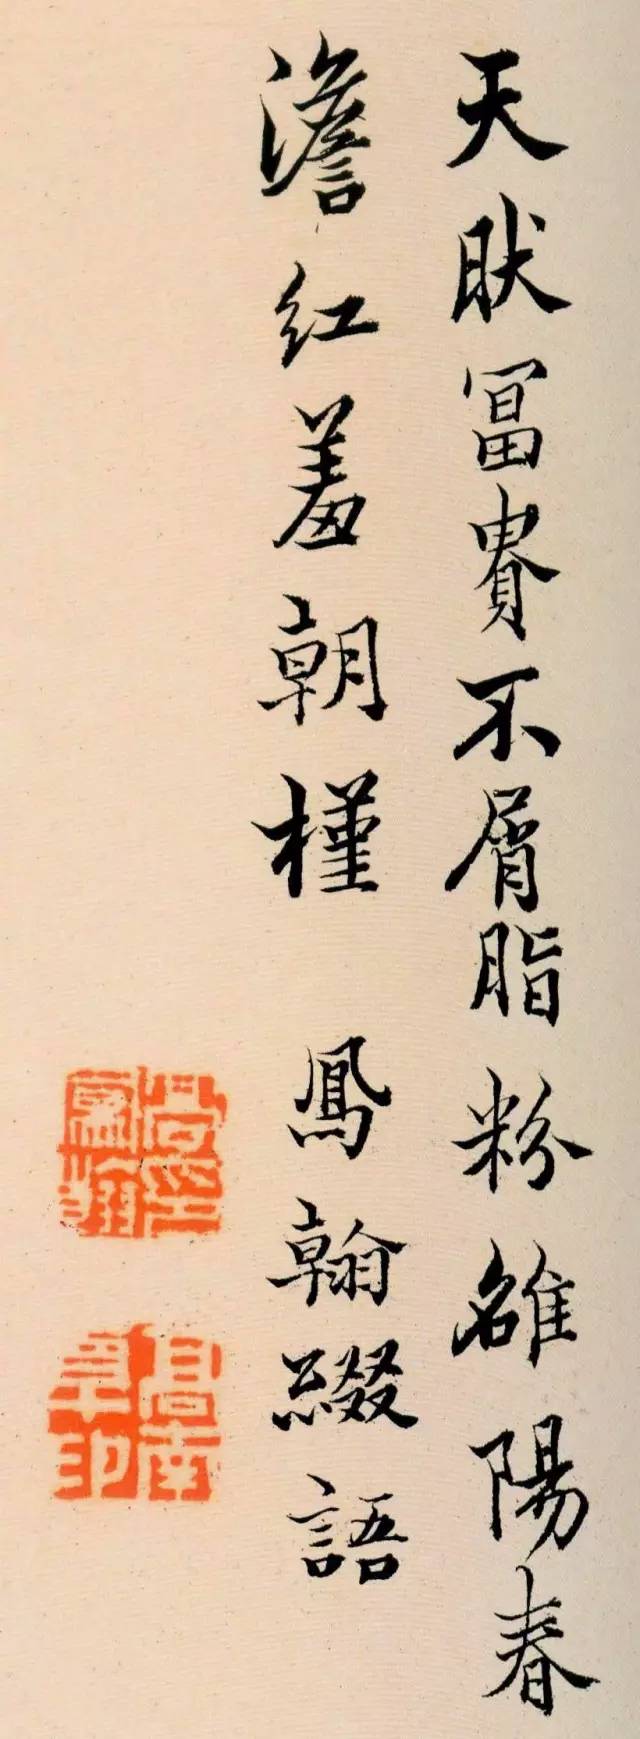 天肰冨貴不屑脂粉雒陽春
澹紅羞朝槿 鳳翰綴語